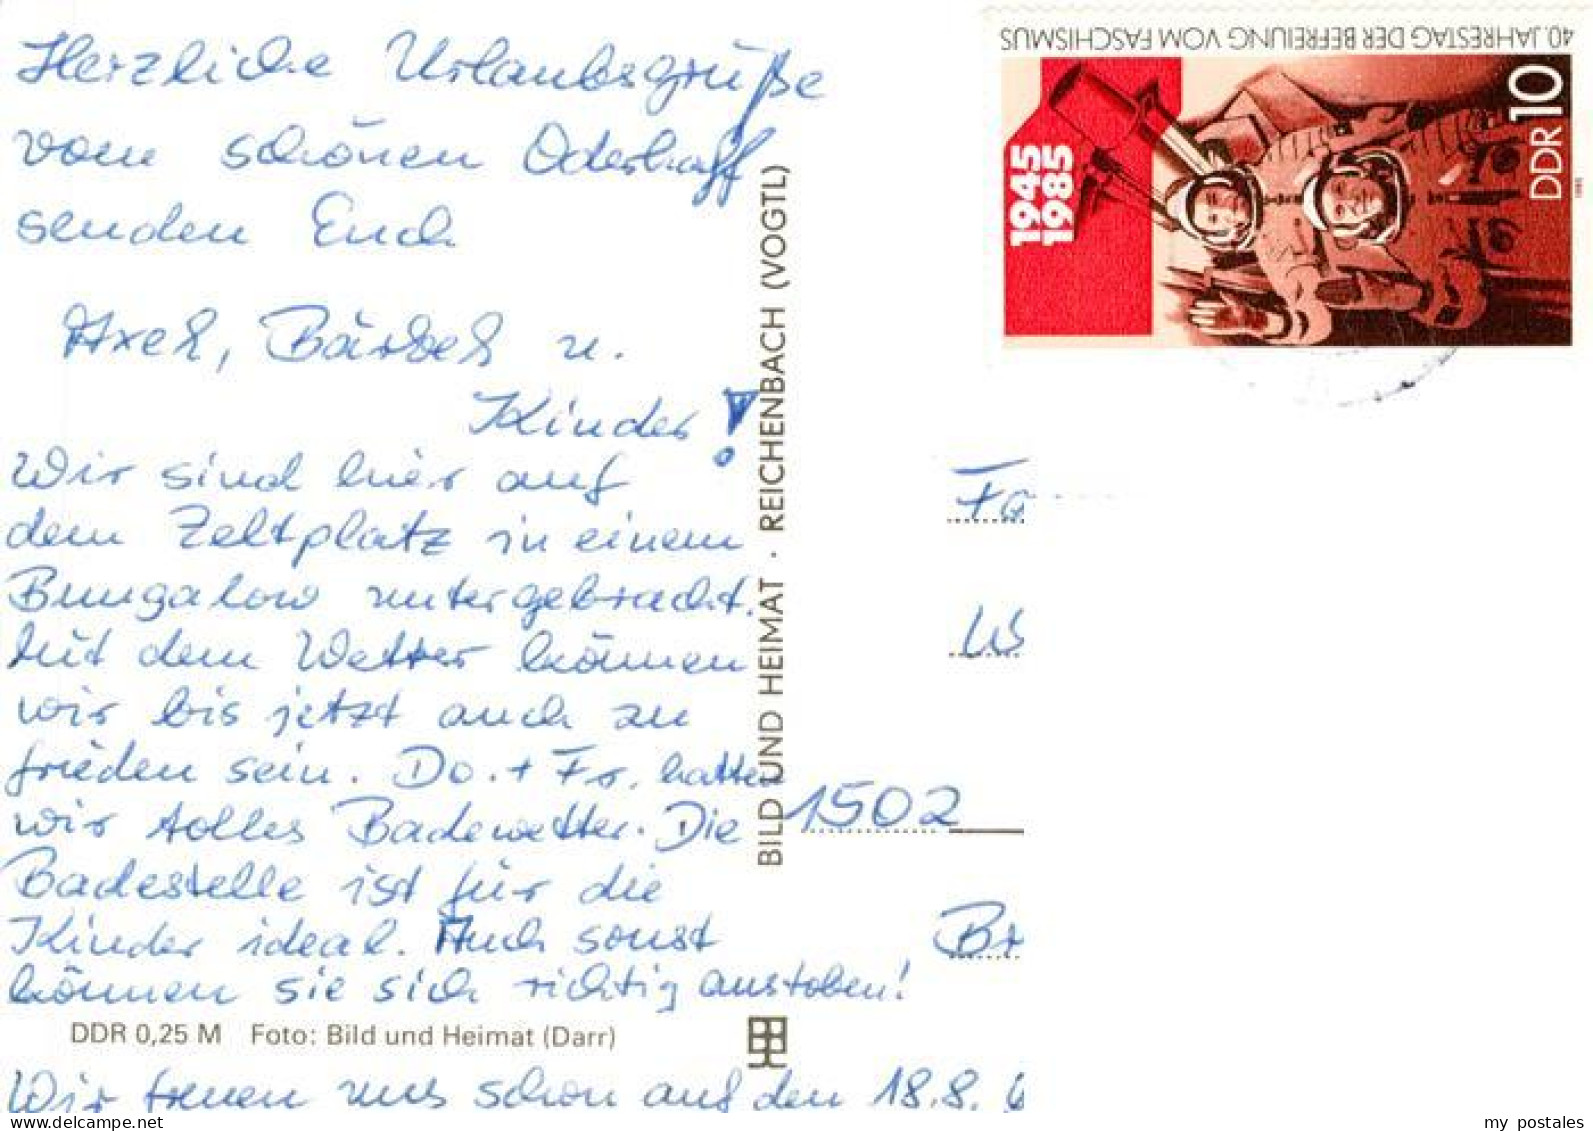 Herzliche Urlaubsgrüße
vom schönen Oderhaff
senden Euch
Axel, Bärbel u.
Kinder!
Wir sind hier auf
dem Zeltplatz in einem
Bungalow untergebracht.
Mit dem Wetter können
wir bis jetzt auch zu
frieden sein. Do. + Fr. hatten
wir tolles Badewetter. Die
Badestelle ist für die
Kinder ideal. Auch sonst
können sie sich richtig austoben!
DDR 0,25 M Foto: Bild und Heimat (Darr)
Wir freuen uns schon auf den 18.8.
BILD UND HEIMAT · REICHENBACH (VOGTL)
40. JAHRESTAG DER BEFREIUNG VOM FASCHISMUS
1945
1985
DDR 10
1985
Fa
1502
Br
my postales